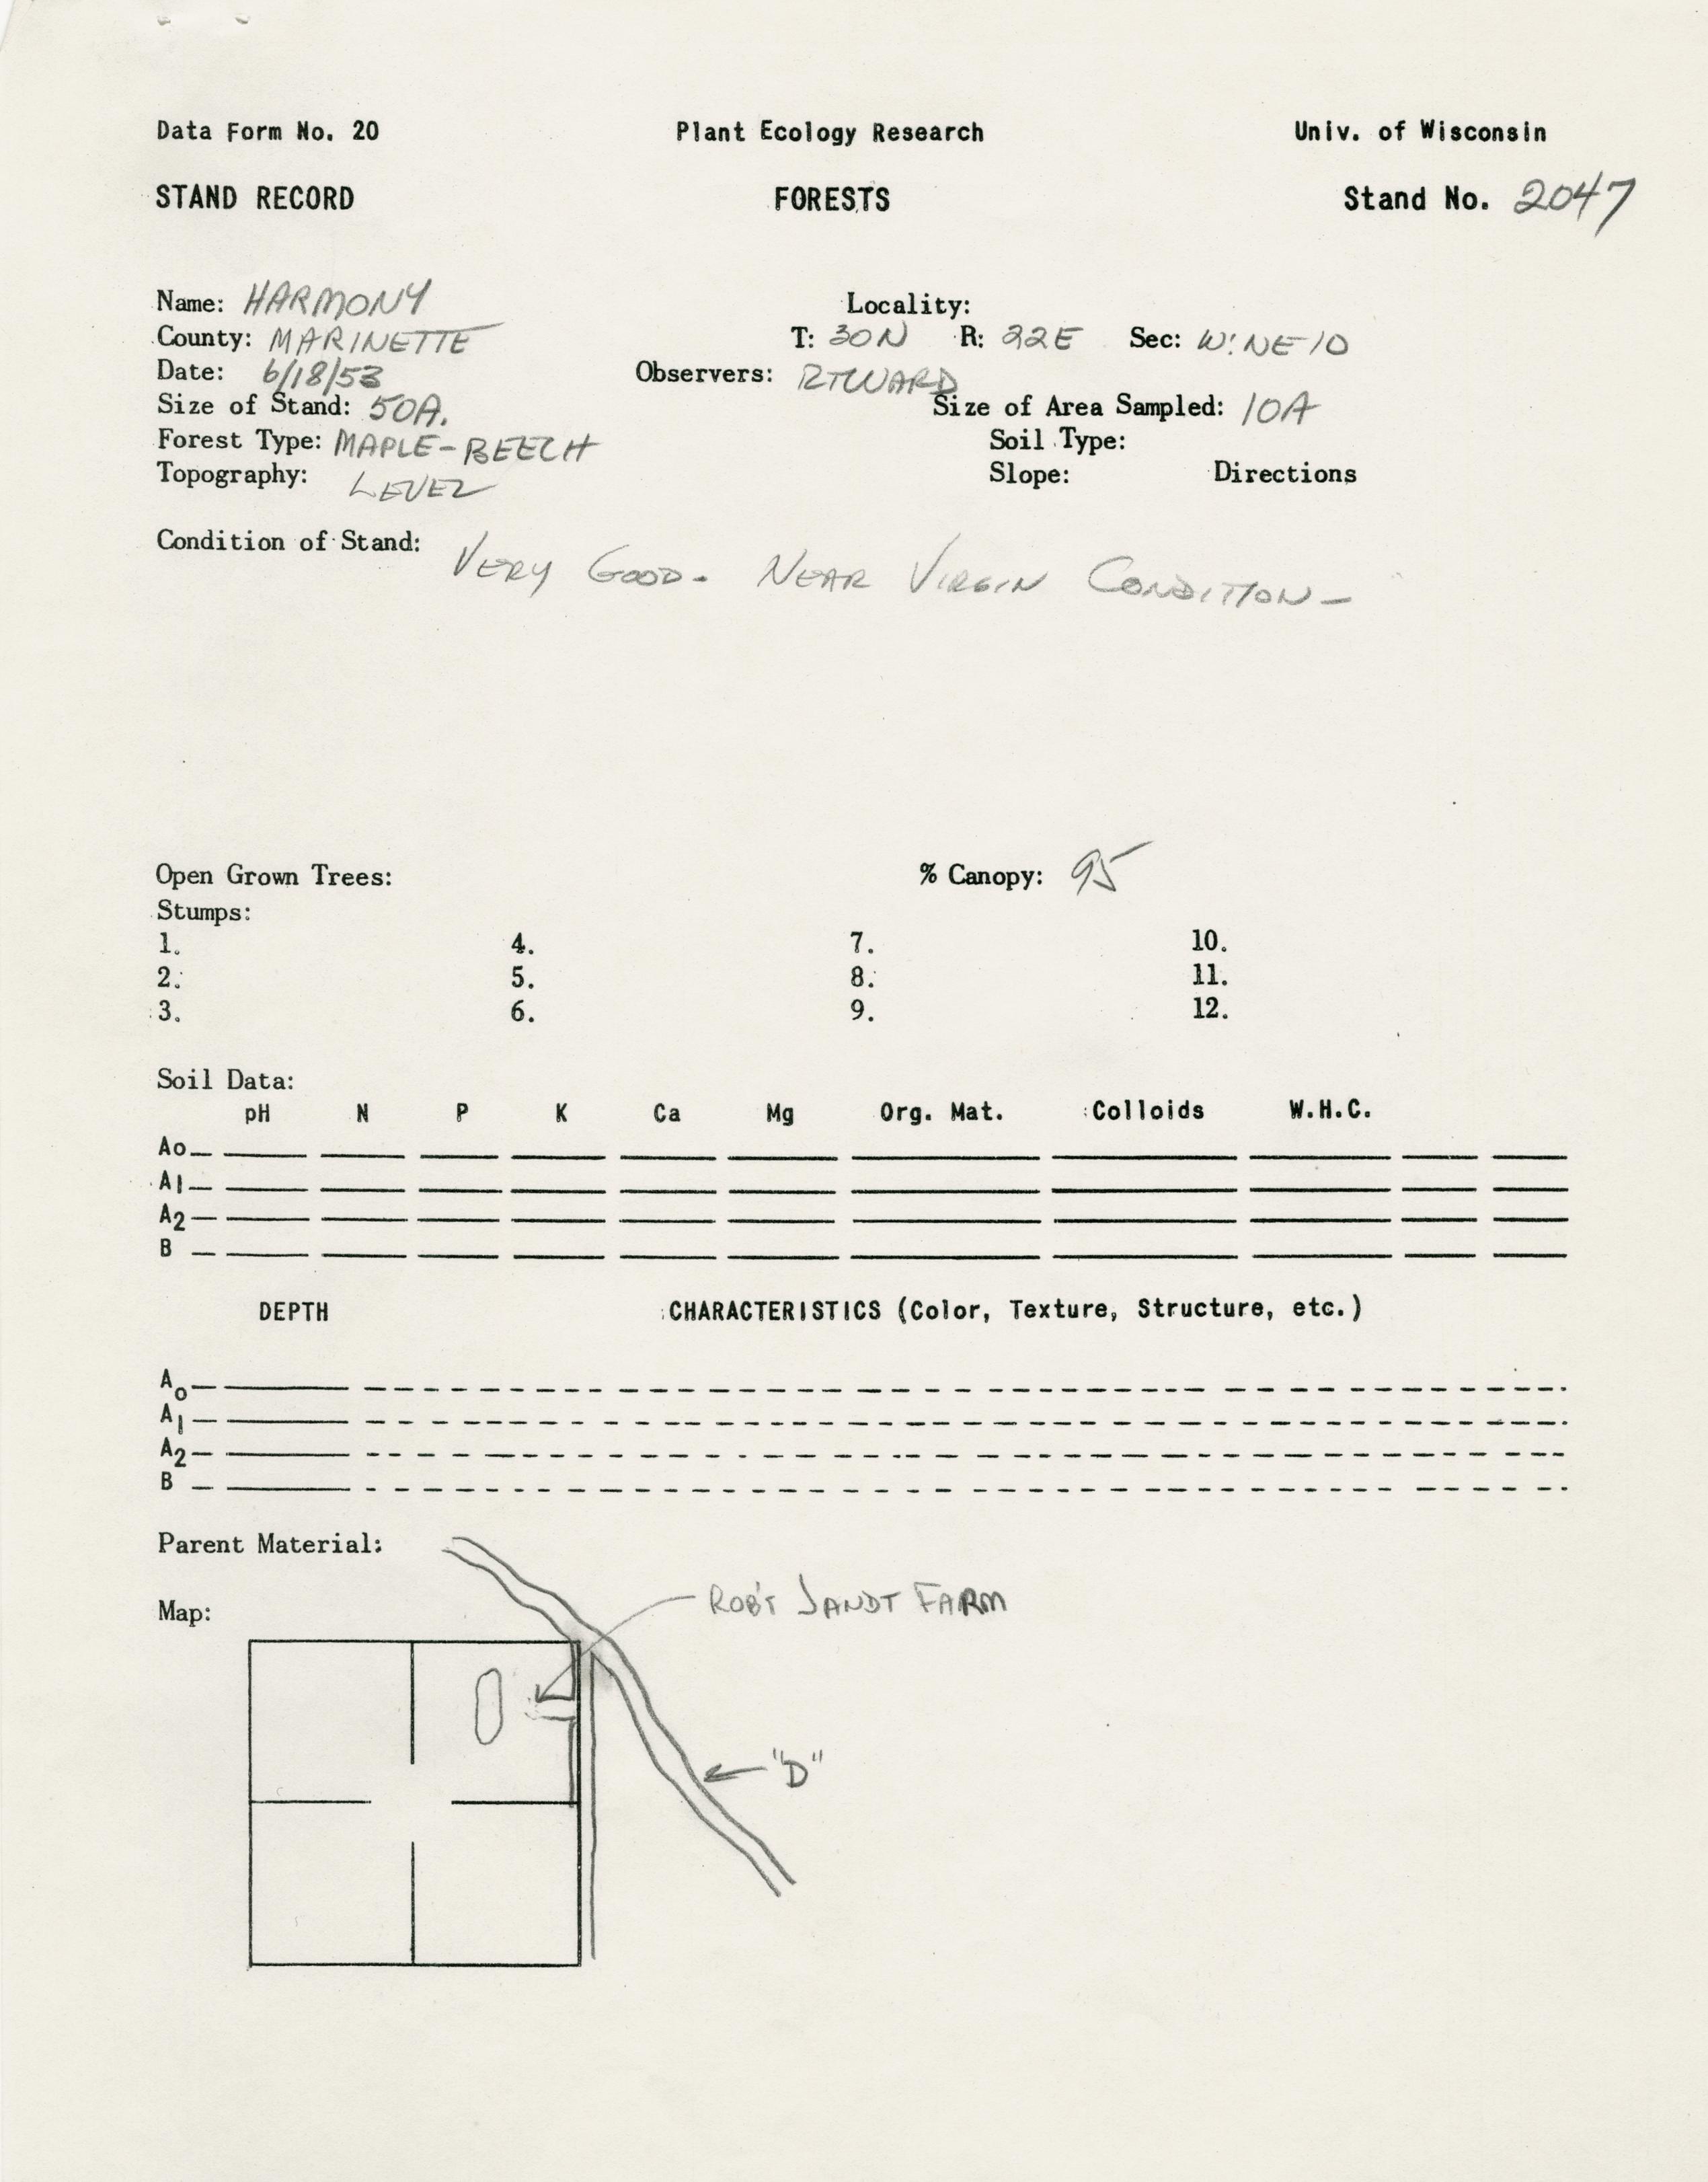 Data Form No. 20 Plant Ecology Research Univ. of Wisconsin
STAND RECORD FORESTS Stand No. 2047
Name: HARMONY Locality:
County: MARINETTE T: 30N R: 22E Sec: W: NE 10
Date: 6/18/53 Observers: RTWARD
Size of Stand: 50A. Size of Area Sampled: 10A
Forest Type: MAPLE-BEECH Soil Type:
Topography: LEVEL Slope: Directions
Condition of Stand: VERY GOOD. NEAR VIRGIN CONDITION-
Open Grown Trees: % Canopy: 95
Stumps:
1. 4. 7. 10.
2. 5. 8. 11.
3. 6. 9. 12.
Soil Data:
pH N P K Ca Mg Org. Mat. Colloids W.H.C.
Ao
A1
A2
B
DEPTH CHARACTERISTICS (Color, Texture, Structure, etc.)
Ao
A1
A2
B
Parent Material:
Map: ROB'T JANDT FARM
"D"